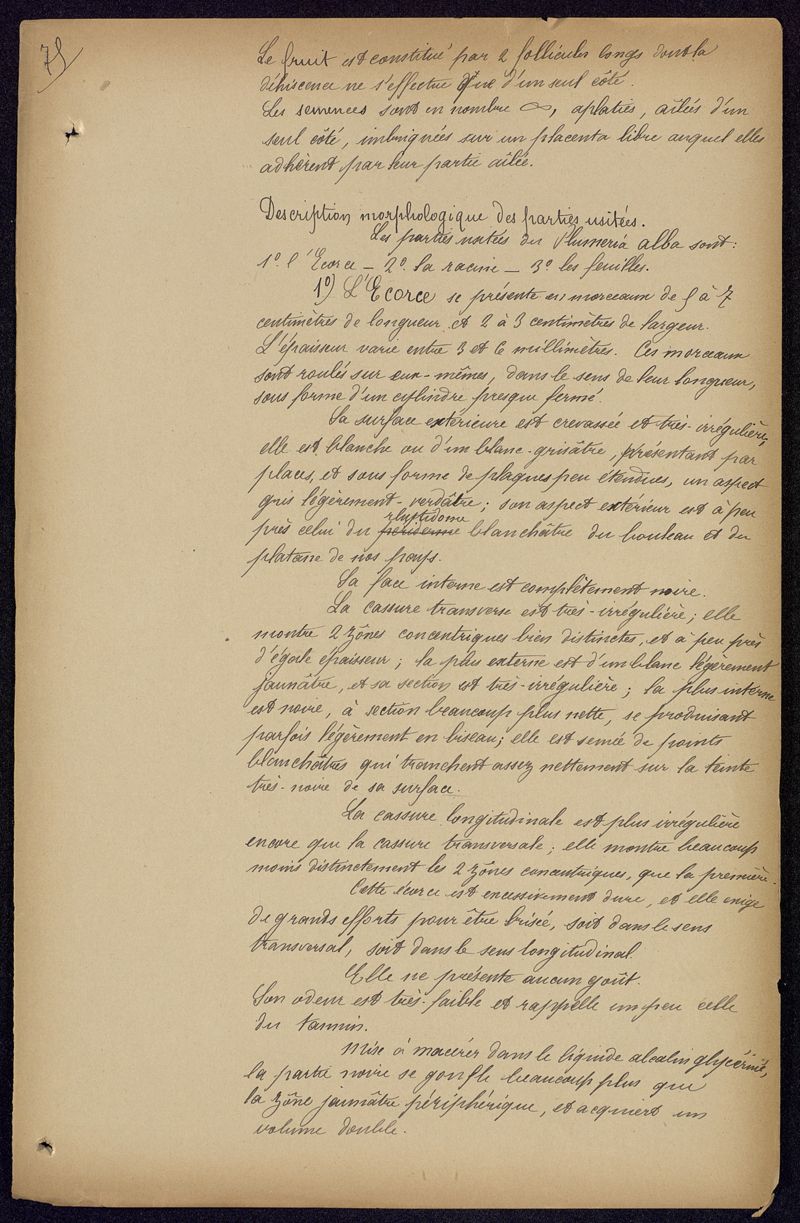 75
Le fruit est constitué par 2 follicules longs dont la
déhiscence ne s'effectue que d'un seul côté.
Les semences sont en nombre ∞, aplaties, ailées d'un
seul côté, imbriquées sur un placenta libre auquel elles
adhèrent par leur partie ailée.
Description morphologique des parties usitées.
Les parties usitées du Plumeria alba sont:
1º. l'Ecorce — 2º. la racine — 3º les feuilles.
1º) L'Ecorce se présente en morceaux de 5 à 7
centimètres de longueur et 2 à 3 centimètres de largeur.
L'épaisseur varie entre 3 et 6 millimètres. Ces morceaux
sont roulés sur eux-mêmes, dans le sens de leur longueur,
sous forme d'un cylindre presque fermé.
La surface extérieure est crevassée et très-irrégulière;
elle est blanche ou d'un blanc-grisâtre, présentant par
places, et sous forme de plaques peu étendues, un aspect
gris légèrement-verdâtre; son aspect extérieur est à peu
rhytidome
près celui du periderme blanchâtre du bouleau et du
platane de nos pays.
La face interne est complètement noire.
La cassure transverse est très-irrégulière; elle
montre 2 zônes concentriques bien distinctes, et à peu près
d'égale épaisseur; la plus externe est d'un blanc légèrement
jaunâtre, et sa section est très-irrégulière; la plus interne
est noire, à section beaucoup plus nette, se produisant
parfois légèrement en biseau; elle est semée de points
blanchâtres qui tranchent assez nettement sur la teinte
très-noire de sa surface.
La cassure longitudinale est plus irrégulière
encore que la cassure transversale; elle montre beaucoup
moins distinctement les 2 zônes concentriques, que la première.
Cette écorce est excessivement dure, et elle exige
de grands efforts pour être brisée, soit dans le sens
transversal, soit dans le sens longitudinal.
Elle ne présente aucun goût.
Son odeur est très-faible et rappelle un peu celle
du tannin.
Mise à macérer dans le liquide alcalin glycériné,
la partie noire se gonfle beaucoup plus que
la zône jaunâtre périphérique, et acquiert un
volume double.